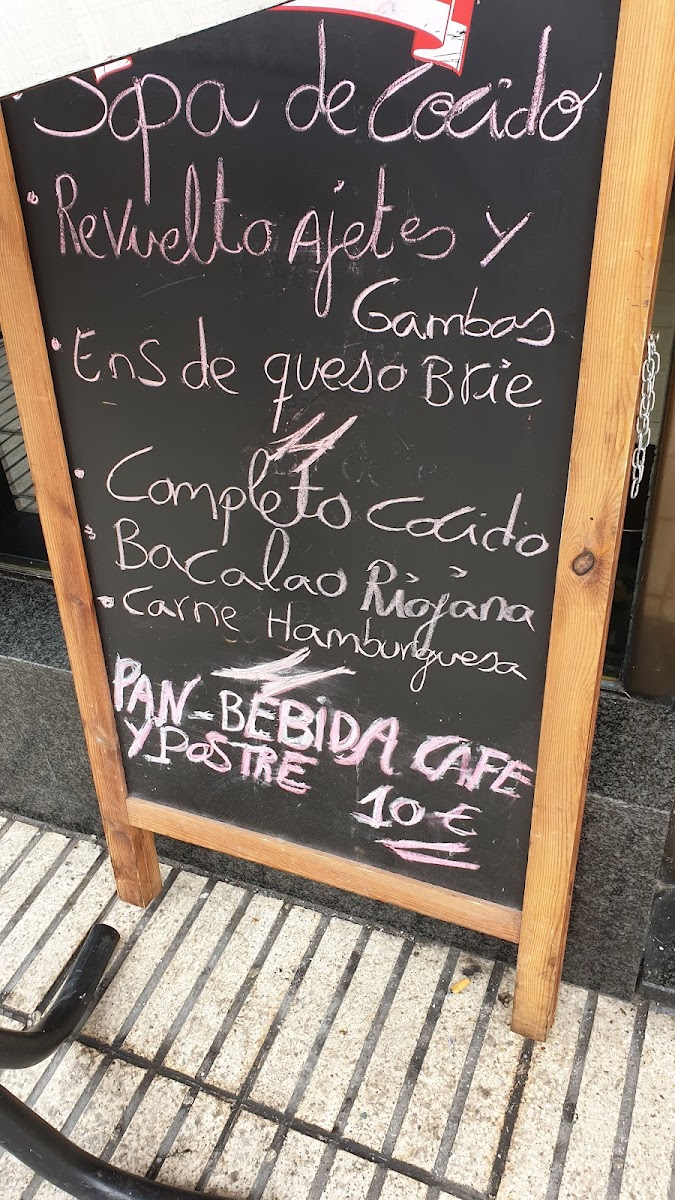 Sopa de Cocido
Revuelto Ajetes y
Gambas
Ens de queso Brie
Completo Cocido
Bacalao Riojana
Carne Hamburguesa
PAN-BEBIDA CAFE
Y POSTRE
10 €